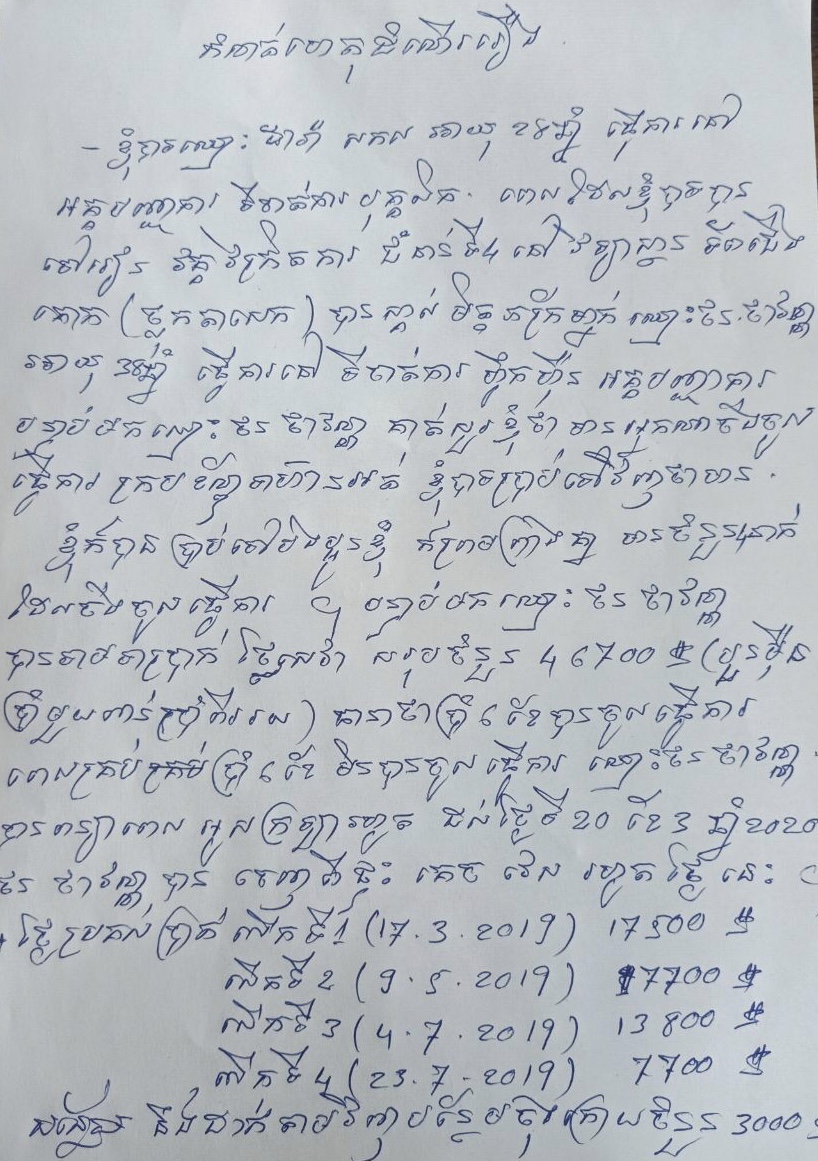 កំណត់ហេតុដំណើររឿង
- ខ្ញុំបាទឈ្មោះ ដារ៉ា សកល អាយុ ២៤ឆ្នាំ ធ្វើការនៅ
អគ្គបញ្ជាការ ទីចាត់ការ បុគ្គលិក. ពេលដែលខ្ញុំបាទបាន
ទៅរៀន វគ្គវិក្រិតការ ជំនាន់ទី4 នៅវិទ្យាស្ថាន ទ័ពជើង
គោក (ថ្លុកតាសេក) បានស្គាល់ មិត្តភក្រ្តិម្នាក់ ឈ្មោះថន ថាវណ្ណា
អាយុ 38ឆ្នាំ ធ្វើការនៅ ទីចាត់ការ ហ្វឹកហ្វឺន អគ្គបញ្ជាការ
បន្ទាប់មកឈ្មោះ ថន ថាវណ្ណា គាត់សួរខ្ញុំថា មានអ្នកណាចង់ចូល
ធ្វើការ ក្របខ័ណ្ឌទាហានអត់ ខ្ញុំបាទប្រាប់ទៅវិញថាមាន.
ខ្ញុំក៏បាន ប្រាប់ទៅបងប្អូនខ្ញុំ ក៏ព្រមព្រៀងគ្នា មានចំនួន4នាក់
ដែលចង់ចូលធ្វើការ ។ បន្ទាប់មក ឈ្មោះ ថន ថាវណ្ណា
បានទាមទារប្រាក់ ថ្លៃសេវា សរុបចំនួន 46700 $ (បួនម៉ឺន
ប្រាំមួយពាន់ប្រាំពីររយ) ធានាថាប្រាំ ៦ ខែបានចូលធ្វើការ
ពេលគ្រប់ ប្រាំ ៦ ខែ មិនបានចូលធ្វើការ ឈ្មោះថន ថាវណ្ណា.
បានពន្យាពេល អូសក្រឡារហូត ដល់ថ្ងៃទី20 ខែ3 ឆ្នាំ2020
ថន ថាវណ្ណា បាន ចេញពីផ្ទះ គេច វេស រហូត ថ្ងៃ នេះ ។
ថ្ងៃប្រគល់ប្រាក់ លើកទី1 (17.3.2019) 17500 $
លើកទី 2 (9.5.2019) 7700 $
លើកទី 3 (4.7.2019) 13800 $
លើកទី 4 (23.7.2019) 7700 $
និងដាក់តាមវិញបន្ថែមចុងក្រោយចំនួន 3000$